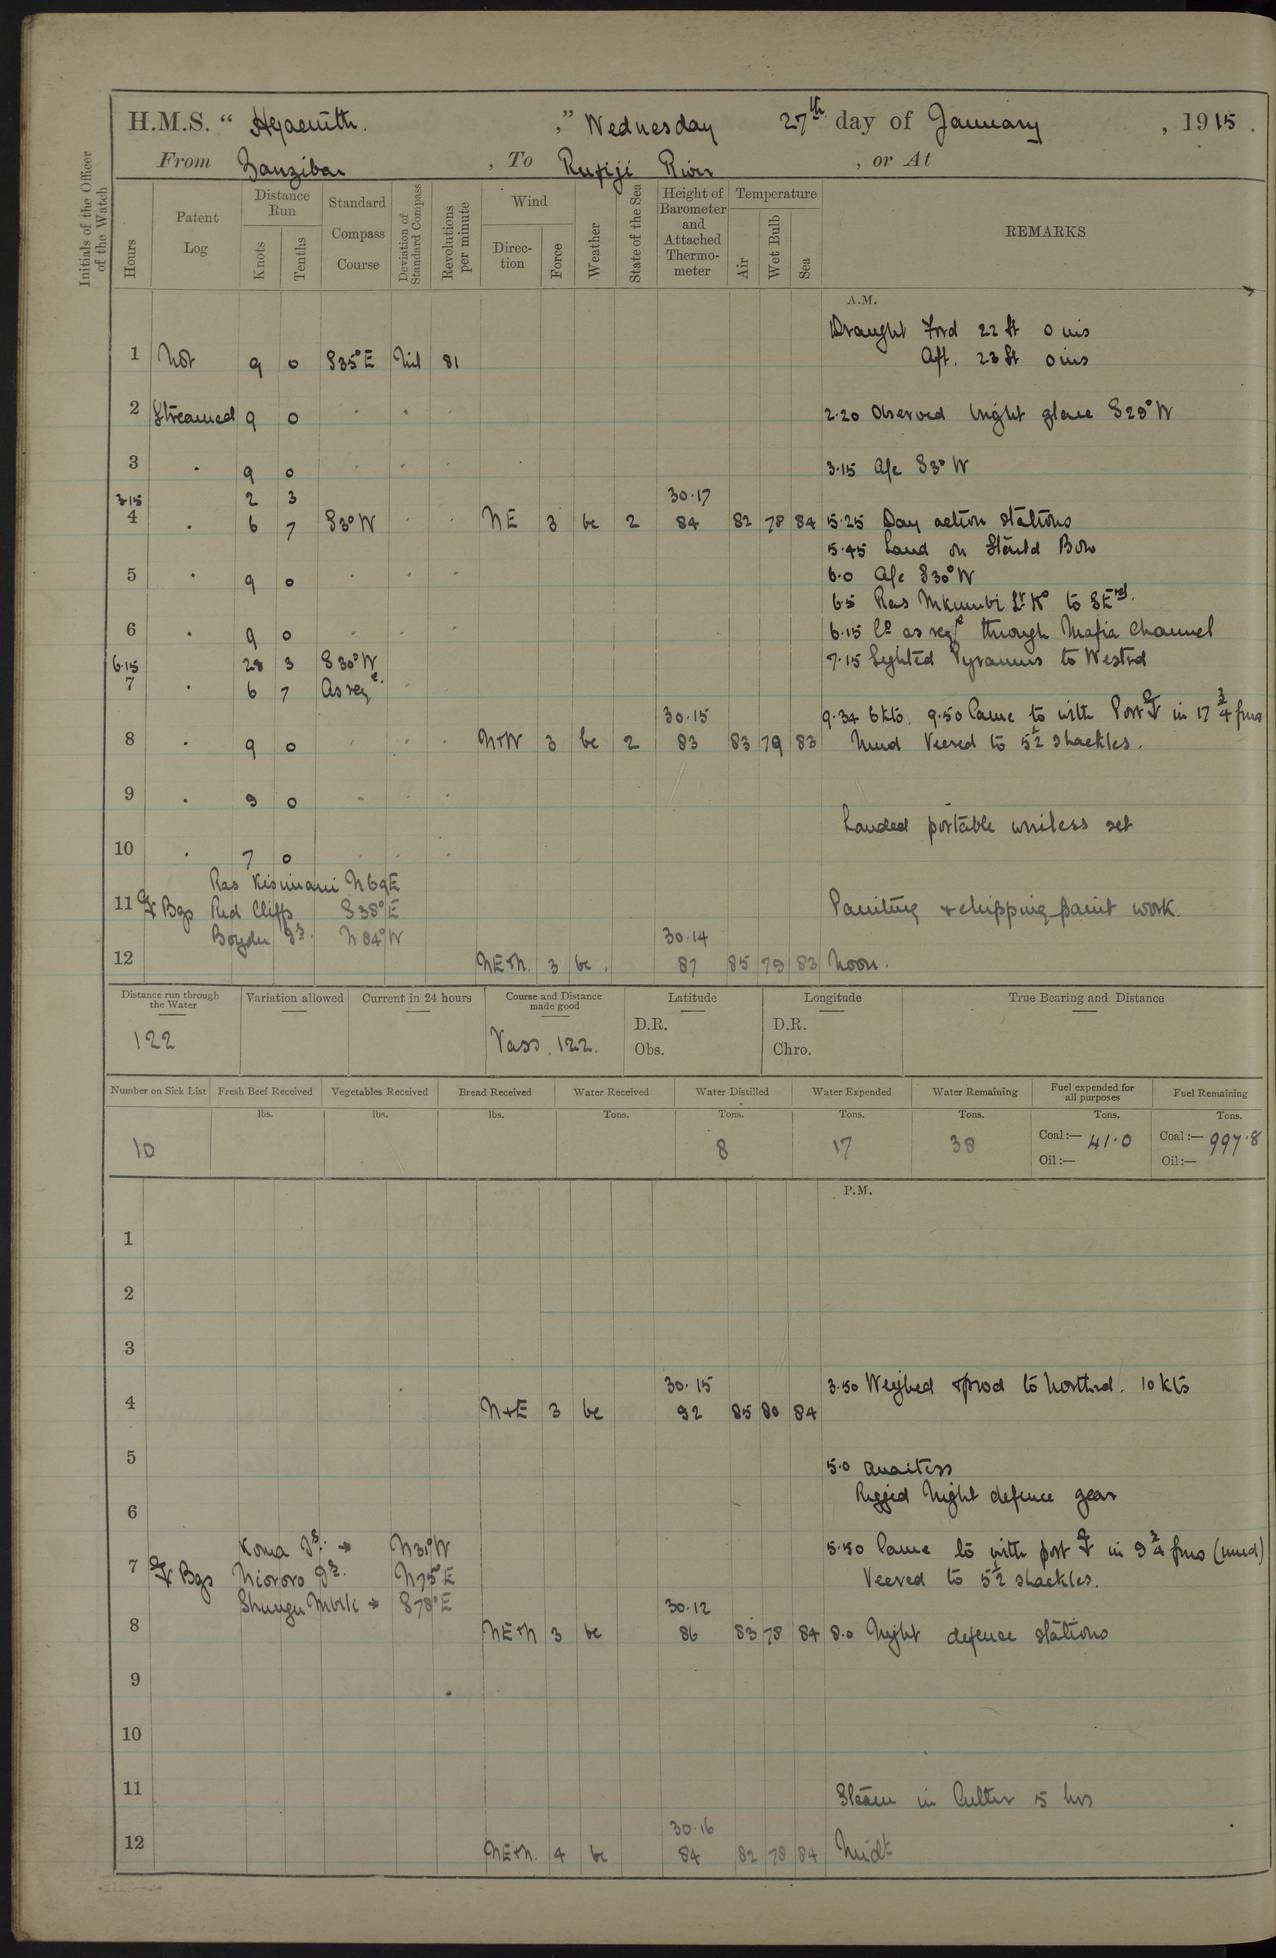 H.M.S. “ Hyacinth. ,” Wednesday 27th day of January , 1915 .
From Zanzibar , To Rufiji River , or At
Initials of the Officer of the Watch
Hours Patent Log Distance Run Knots Tenths Standard Compass Course Deviation of Standard Compass Revolutions per minute Wind Direction Force Weather State of the Sea Height of Barometer and Attached Thermometer Temperature Air Wet Bulb Sea REMARKS
A.M.
Draught Frd 22 ft 0 ins
1 Not 9 0 S35°E Nil 81 Aft. 23 ft 0 ins
2 Streamed 9 0 . . . 2.20 Observed bright glare S29°W
3 . 9 0 . . . 3.15 A/c S3°W
3.15 2 3 30.17
4 . 6 7 S3°W . . NE 3 bc 2 84 82 78 84 5.25 Day action stations
5.45 Land on Starbd Bow
5 . 9 0 . . . 6.0 A/c S30°W
6.5 Ras Mkumbi Lt Ho to SErd.
6 . 9 0 . . . 6.15 Co as reqd through Mafia Channel
6.15 28 3 S30°W 7.15 Sighted Pyramus to Westrd
7 . 6 7 As reqd. .
30.15 9.34 6 kts. 9.50 Came to with Port ⚓ in 17 3/4 fms
8 . 9 0 . . . N+W 3 bc 2 83 83 79 83 Mud Veered to 5 1/2 shackles.
9 . 9 0 . . .
Landed portable wireless set
10 . 7 0 . . .
Ras Kisimani N69E
11 ⚓ Bgs Red Cliffs S38°E Painting & chipping paint work.
Boydu Id. N84°W 30.14
12 NE+N. 3 bc . 87 85 79 83 Noon.
Distance run through the Water Variation allowed Current in 24 hours Course and Distance made good Latitude Longitude True Bearing and Distance
122 Vass. 122. D.R. D.R.
Obs. Chro.
Number on Sick List Fresh Beef Received Vegetables Received Bread Received Water Received Water Distilled Water Expended Water Remaining Fuel expended for all purposes Fuel Remaining
lbs. lbs. lbs. Tons. Tons. Tons. Tons. Tons. Tons.
10 8 17 38 Coal:— 41.0 Coal:— 997.8
Oil:— Oil:—
P.M.
1
2
3
30.15 3.50 Weighed & prod to Northrd. 10 kts
4 N+E 3 bc 92 85 80 84
5
5.0 Quarters
Rigged Night defence gear
6
Koma Id: → N31°W 5.50 Came to with port ⚓ in 9 3/4 fms (mud)
7 ⚓ Bgs Niororo Id. N75°E Veered to 5 1/2 shackles.
Shungu Mbili → S78°E 30.12
8 NE+N 3 bc 86 83 78 84 8.0 Night defence stations
9
10
11 Steam in Cutter 5 hrs
30.16
12 NE+N. 4 bc 84 82 78 84 Midt